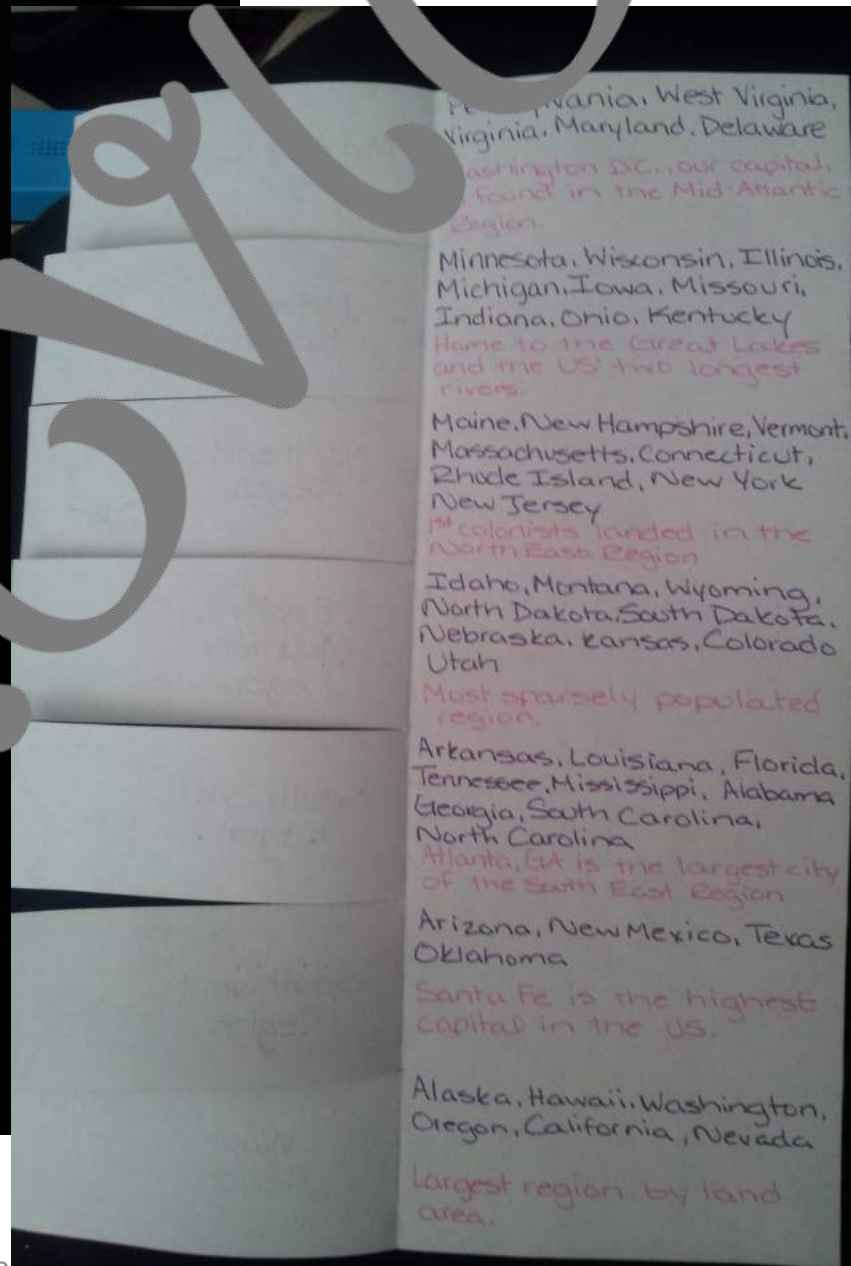 West Virginia,
Virginia, Maryland, Delaware
Washington D.C., our capital,
found in the Mid-Atlantic
Region.
Minnesota, Wisconsin, Illinois,
Michigan, Iowa, Missouri,
Indiana, Ohio, Kentucky
Home to the Great Lakes
and the US' two longest
rivers.
Maine, New Hampshire, Vermont,
Massachusetts, Connecticut,
Rhode Island, New York
New Jersey
1st colonists landed in the
North East Region
Idaho, Montana, Wyoming,
North Dakota, South Dakota,
Nebraska, Kansas, Colorado
Utah
Most sparsely populated
region.
Arkansas, Louisiana, Florida,
Tennessee, Mississippi, Alabama
Georgia, South Carolina,
North Carolina
Atlanta, GA is the largest city
of the South East Region
Arizona, New Mexico, Texas
Oklahoma
Santa Fe is the highest
capital in the US.
Alaska, Hawaii, Washington,
Oregon, California, Nevada
Largest region by land
area.